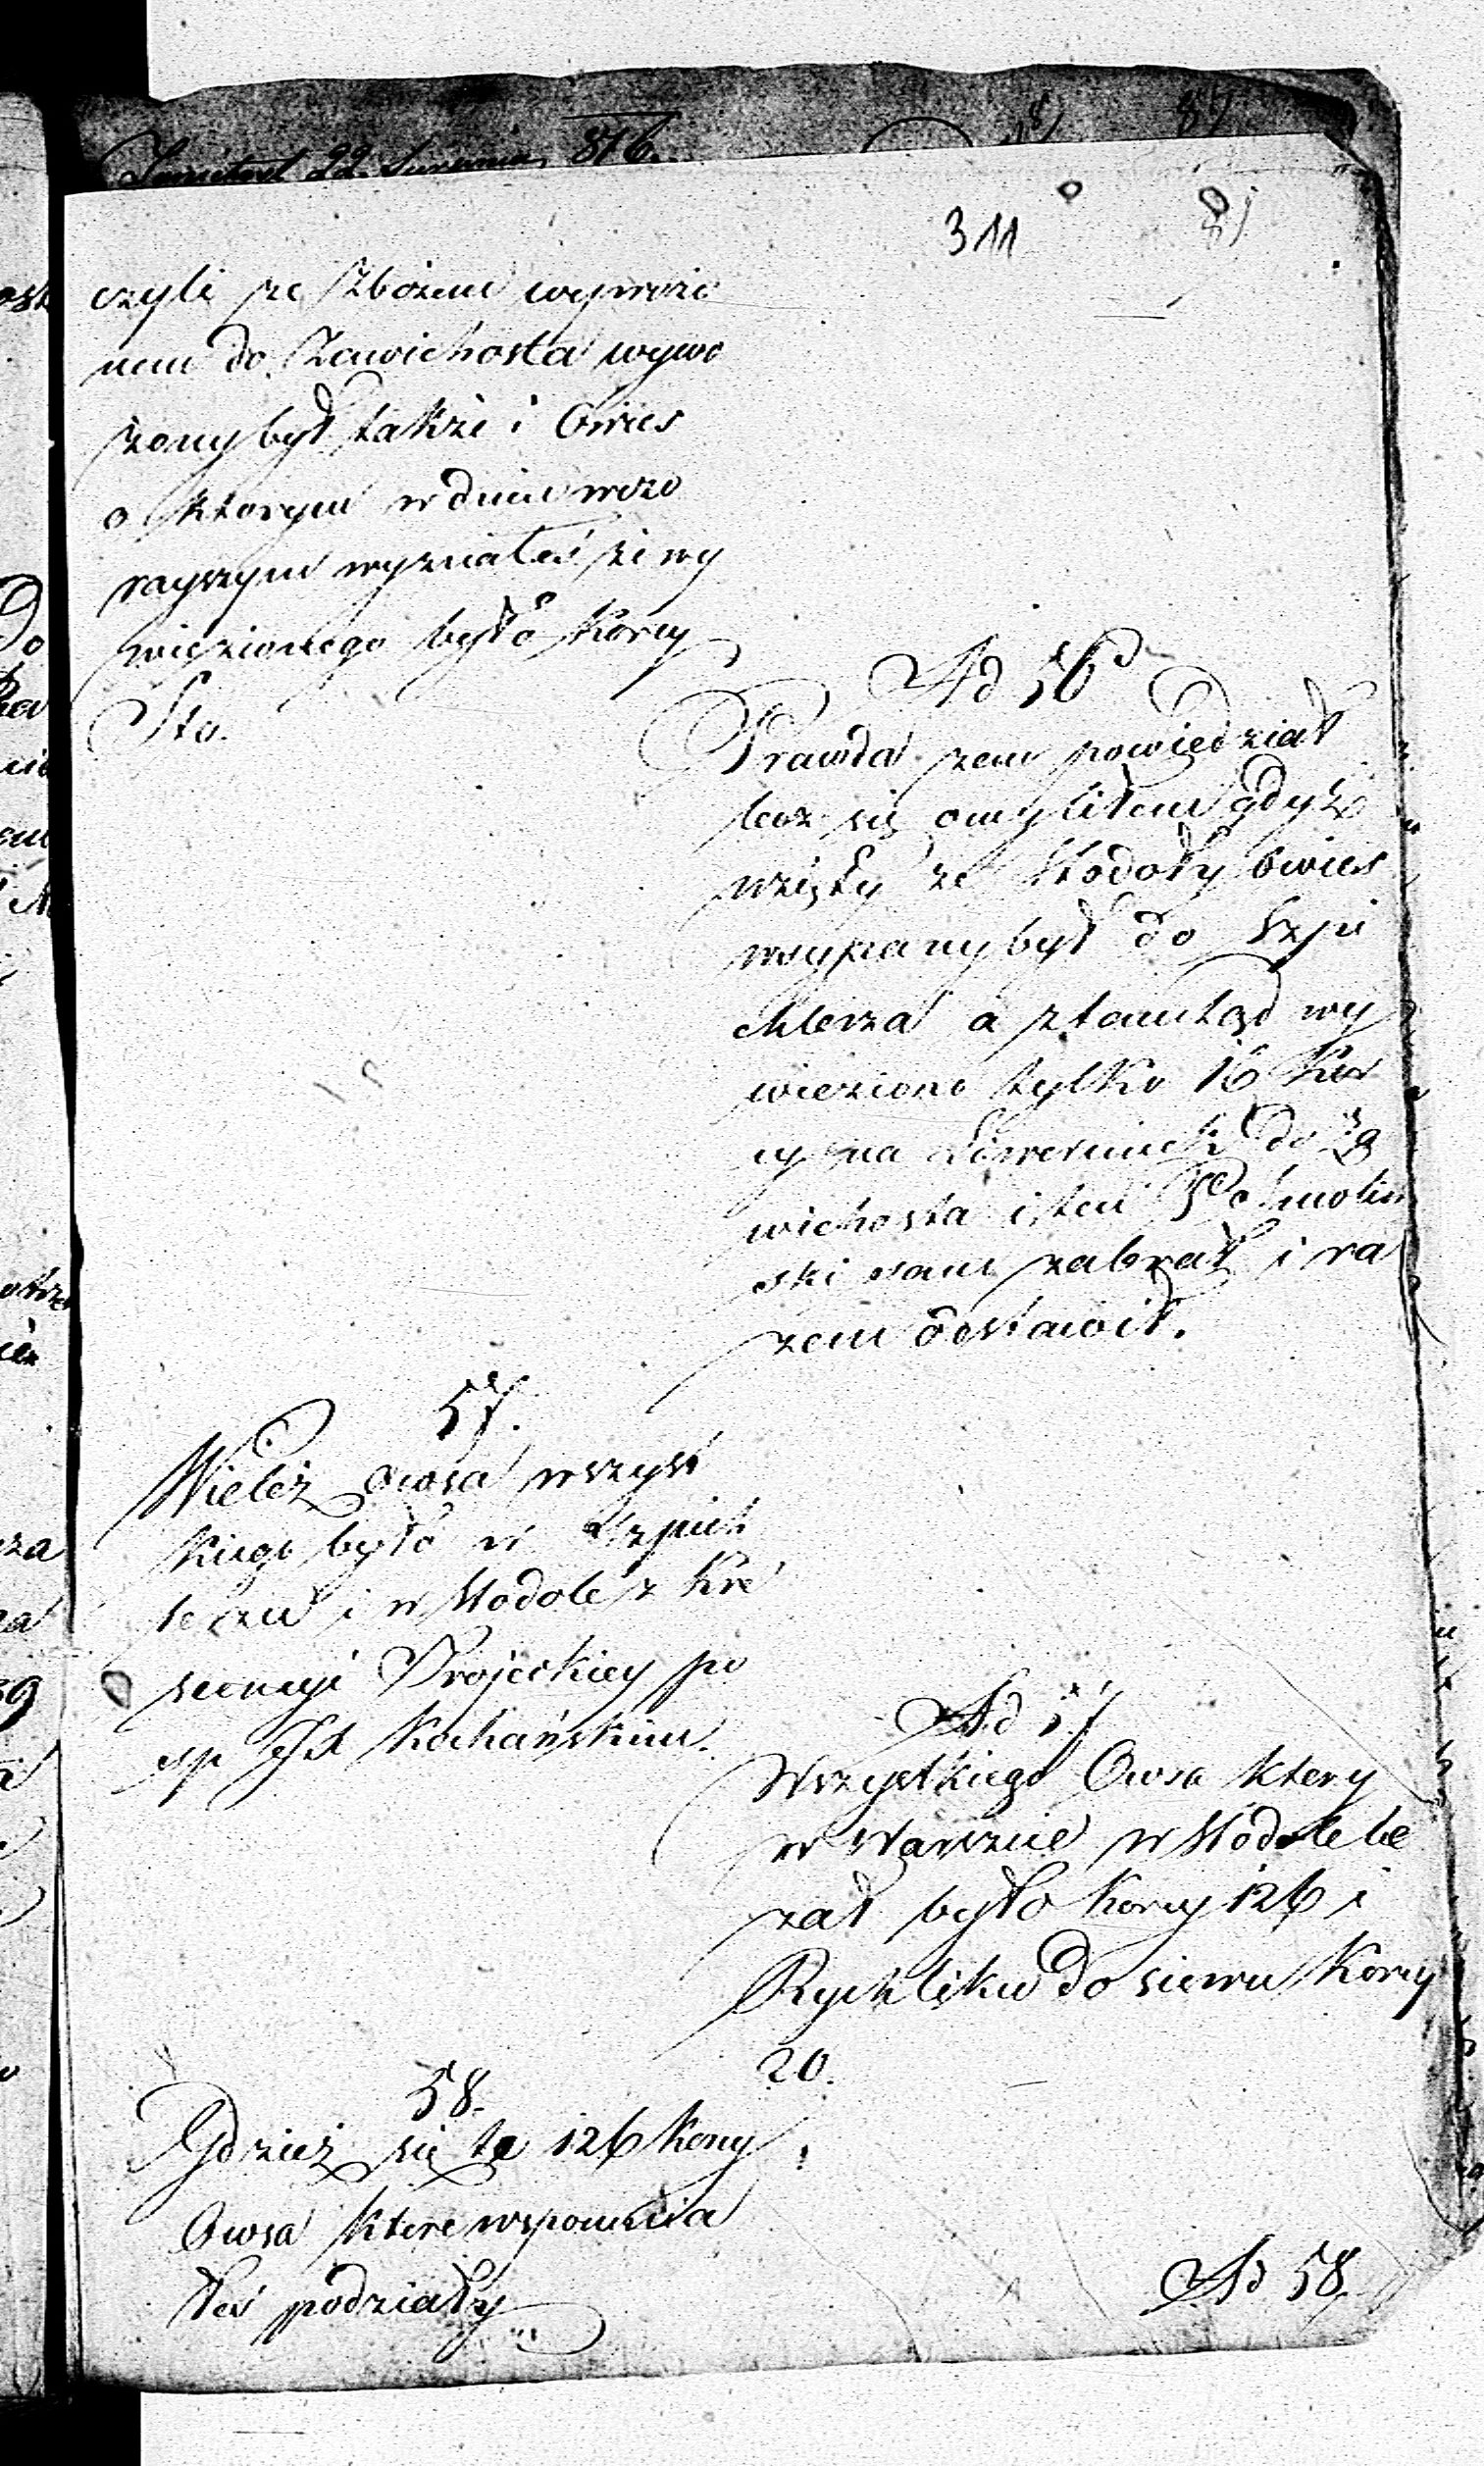 311
czyli ze Zbożem wywozo
nem do Zawichosta wywo
żony był także i Owies
o ktorym w dniu wczo
rayszym wyznałeś że wy
wiezionego było korcy
Sto.
Ad 56
Prawda żem powiedział
lecz się omyliłem gdyż
wzięty ze stodoły owies
wsypany był do Szpi
chlerza a ztamtąd wy
wieziono tylko 16 Kor
cy na do Za
wichosta i ten
ski sam zabrał i ra
zem odstawił.
57.
Wieleż owsa wszyst
kiego było w Szpich
lerzu i w stodole z Kre
scencyi Projeckiey po
sp Kochańskim.
Ad 57
Wszystkiego Owsa ktory
w w stodole le
żał było korcy 126 i
Rychliku do siewu Korcy
20.
58.
Gdzież się te 126 korcy
Owsa ktore wspomnia
łeś podziały
Ad 58